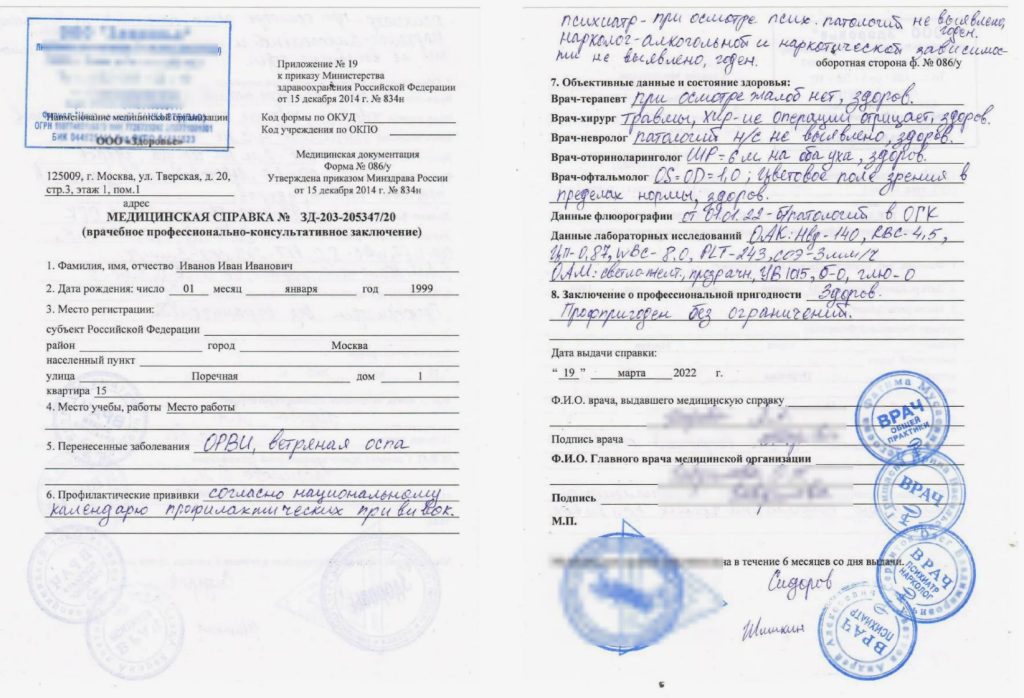 ОГРН
БИК
Наименование медицинской организации
ООО «Здоровье»
125009, г. Москва, ул. Тверская, д. 20,
стр.3, этаж 1, пом.1
адрес
Приложение № 19
к приказу Министерства
здравоохранения Российской Федерации
от 15 декабря 2014 г. № 834н
Код формы по ОКУД
Код учреждения по ОКПО
Медицинская документация
Форма № 086/у
Утверждена приказом Минздрава России
от 15 декабря 2014 г. № 834н
МЕДИЦИНСКАЯ СПРАВКА № ЗД-203-205347/20
(врачебное профессионально-консультативное заключение)
1. Фамилия, имя, отчество Иванов Иван Иванович
2. Дата рождения: число 01 месяц января год 1999
3. Место регистрации:
субъект Российской Федерации
район город Москва
населенный пункт
улица Поречная дом 1
квартира 15
4. Место учебы, работы Место работы
5. Перенесенные заболевания ОРВИ, ветряная оспа
6. Профилактические прививки согласно национальному
календарю профилактических прививок.
психиатр - при осмотре псих. патологий не выявлено,
годен.
нарколог - алкогольной и наркотической зависимос-
ти не выявлено, годен.
оборотная сторона ф. № 086/у
7. Объективные данные и состояние здоровья:
Врач-терапевт при осмотре жалоб нет, здоров.
Врач-хирург травмы, хир-ие операции отрицает, здоров.
Врач-невролог патологий н/с не выявлено, здоров.
Врач-оториноларинголог ШР = 6 м на оба уха, здоров.
Врач-офтальмолог OS = OD = 1,0; Цветовое поле зрения в
пределах нормы, здоров.
Данные флюорографии от 01.01.22 - б/патологий в ОГК
Данные лабораторных исследований ОАК: Нвр - 140, RBC - 4,5,
ЦП - 0,87, WBC - 8.0, PLT - 243, СОЭ - 3 мм/ч
ОАМ: светло-желт, прозрачн, УВ 1015, б-0, глю-0
8. Заключение о профессиональной пригодности Здоров.
Профпригоден без ограничений.
Дата выдачи справки:
“ 19 ” марта 2022 г.
Ф.И.О. врача, выдавшего медицинскую справку
Подпись врача
Ф.И.О. Главного врача медицинской организации
Подпись
М.П.
на в течение 6 месяцев со дня выдачи.
Сидоров
Шишкин
ВРАЧ
ОБЩЕЙ
ПРАКТИКИ
ВРАЧ
ВРАЧ
ПСИХИАТР
НАРКОЛОГ
ВРАЧ
ПСИХИАТР